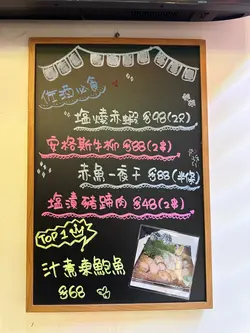 佐酒必食
塩燒赤蝦 $98(2隻)
安格斯牛柳 $88(2串)
赤魚一夜干 $88(半條)
塩漬豬蹄肉 $48(2串)
TOP 1
汁煮粟鮑魚
$68